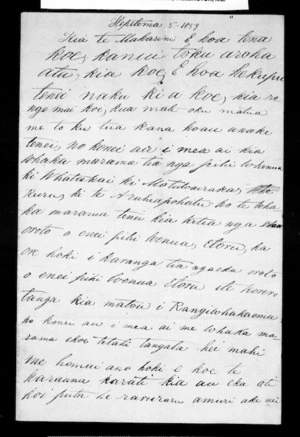 Hepetema 5. 1859
Kia te Makarini E hoa tena
koe, ka nui toku aroha
atu, kia koe, E hoa he kupu
tenei naku ki a koe, kia ro
ngo mai koe, kua mate oku matua
me to ku tua kana ko au anake
tenei, no konei au i mea ai kia
whaka marama tia nga pihi whenua
ki Whatakai ki Motutaraka,
ki te ko te whaka
ka marama tenei kia kitea nga
oroto o enei pihi wenua, Etoru, ka
ore hoki i karanga tia ngaeka oroto
o enei pihi wenua Etoru ite horero
tanga kia matou i Rangiwhakaoma
ko konei au i mea ai me whaka ma-
rama ekoe tetahi tangata hei mahi
me homai ano hoki e koe te
karauna karati kia au eka oti
koi putu he raruraru amuri ake nei